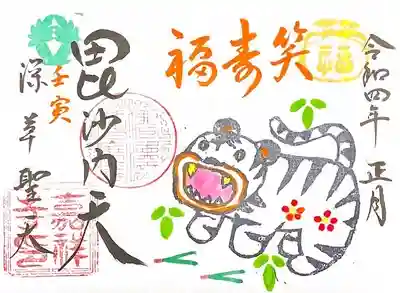 令和四年 正月
福
笑寿福
毘沙門天
壬寅
深草 聖天